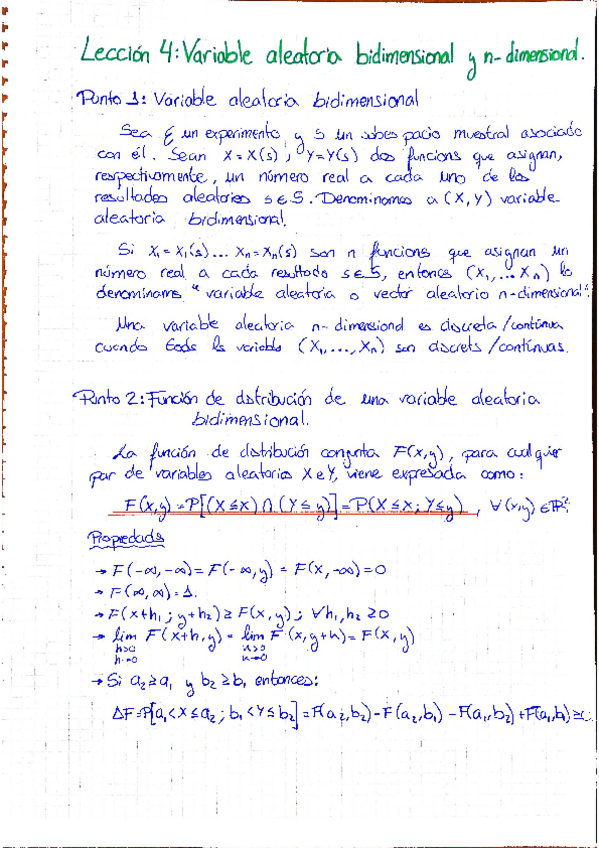 Lección 4: Variable aleatoria bidimensional y n-dimensional.
Punto 1: Variable aleatoria bidimensional
Sea ξ un experimento, y S un subespacio muestral asociado
con él. Sean X=X(s), Y=Y(s) dos funcions que asignan,
respectivamente, un número real a cada uno de los
resultados aleatorios s∈S. Denominamos a (X,Y) variable
aleatoria bidimensional.
Si X₁=X₁(s)... Xn=Xn(s) son n funcions que asignan un
número real a cada resultado s∈S, entonces (X₁,...Xn) lo
denominams "variable aleatoria o vector aleatorio n-dimensional".
Una variable aleatoria n-dimensional es discreta/continua
cuando todas las variables (X₁,...,Xn) son discrets/continuas.
Punto 2: Función de distribución de una variable aleatoria
bidimensional.
La función de distribución conjunta F(x,y), para cualquier
par de variables aleatorias X e Y, viene expresada como:
F(x,y)=P[(X≤x)∩(Y≤y)]=P(X≤x; Y≤y), ∀(x,y)∈ℝ².
Propiedads
→ F(-∞,-∞)=F(-∞,y)=F(x,-∞)=0
→ F(∞,∞)=1.
→ F(x+h₁; y+h₂)≥F(x,y); ∀h₁,h₂≥0
→ lim F(x+h,y)=lim F(x,y+h)=F(x,y)
h>0 h>0
h→0 h→0
→ Si a₂≥a₁ y b₂≥b₁ entonces:
ΔF=P[a₁<X≤a₂; b₁<Y≤b₂]=F(a₂,b₂)-F(a₂,b₁)-F(a₁,b₂)+F(a₁,b₁)≥0